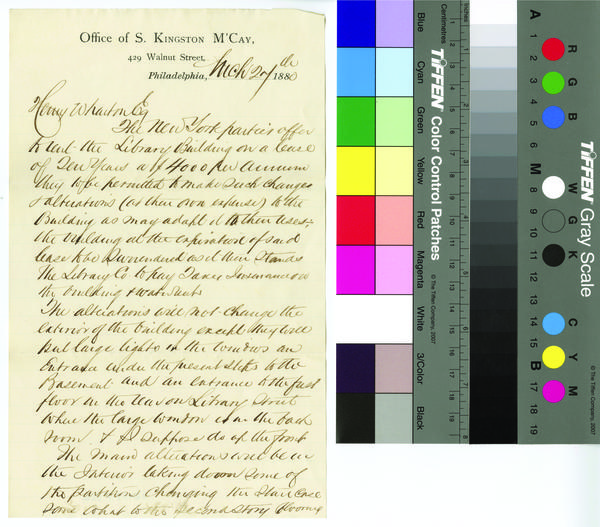 Office of S. Kingston M'Cay,
429 Walnut Street,
Philadelphia, Mch 20th 1880
Henry Wharton Esq
The New York parties offer
to rent the Library Building on a lease
of Ten Years at $4000 per Annum
they to be permitted to make such changes
& alterations (at their own expense) to the
Building as may adapt it to their uses.
the building at the expiration of said
lease to be surrendered as it then stands
The Library Co to pay Taxes Insurance on
the building & water rents
The alterations will not change the
exterior of the building except they will
put large lights in the windows an
entrance under the present steps to the
Basement and an entrance to the first
floor in the rear on Library Street
where the large window is in the back
room & I suppose do up the front
The main alterations will be in
the Interior taking down some of
the partition changing the Stair Case
some what to the second story
Inches
Centimetres
Blue
Cyan
Green
Yellow
Red
Magenta
White
3/Color
Black
TIFFEN Color Control Patches
© The Tiffen Company, 2007
A
1
2
3
4
5
6
M
8
9
10
11
12
13
14
15
B
17
18
19
R
G
B
W
G
K
C
Y
M
TIFFEN Gray Scale
© The Tiffen Company, 2007